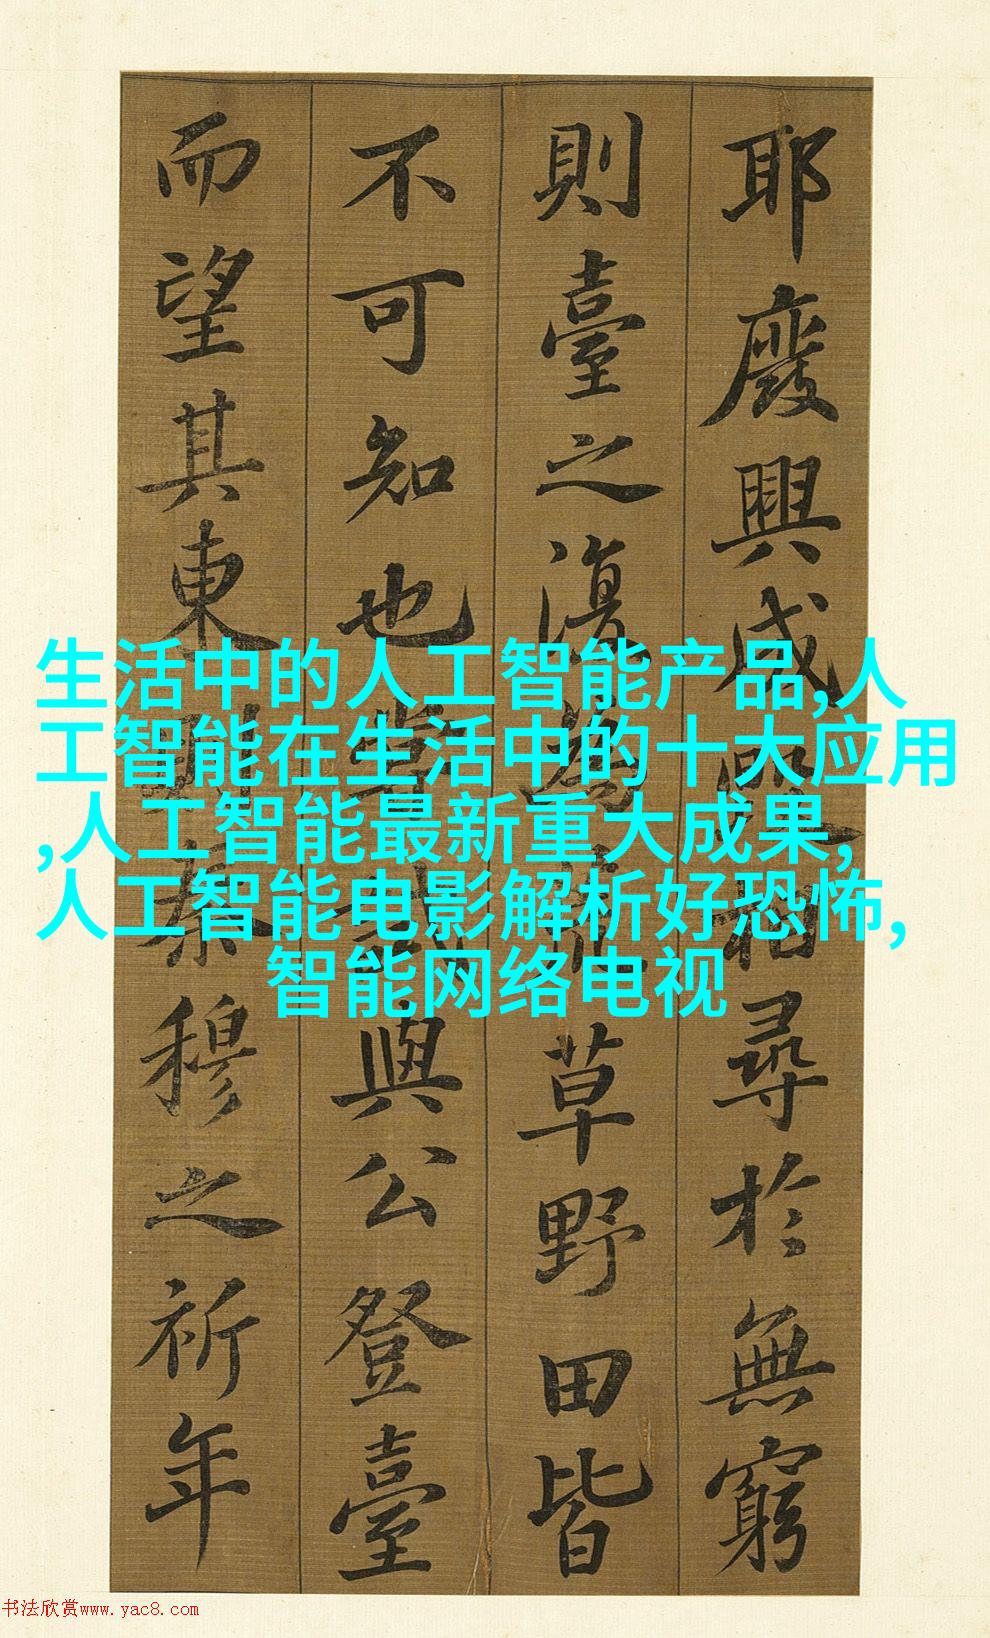 耶廢興成毀相尋於無窮
則臺之復為荒草野田皆
不可知也嘗試與公登臺
而望其東則秦穆之祈年
生活中的人工智能产品,人
工智能在生活中的十大应用
,人工智能最新重大成果,
人工智能电影解析好恐怖,
智能网络电视
书法欣赏www.yac8.com